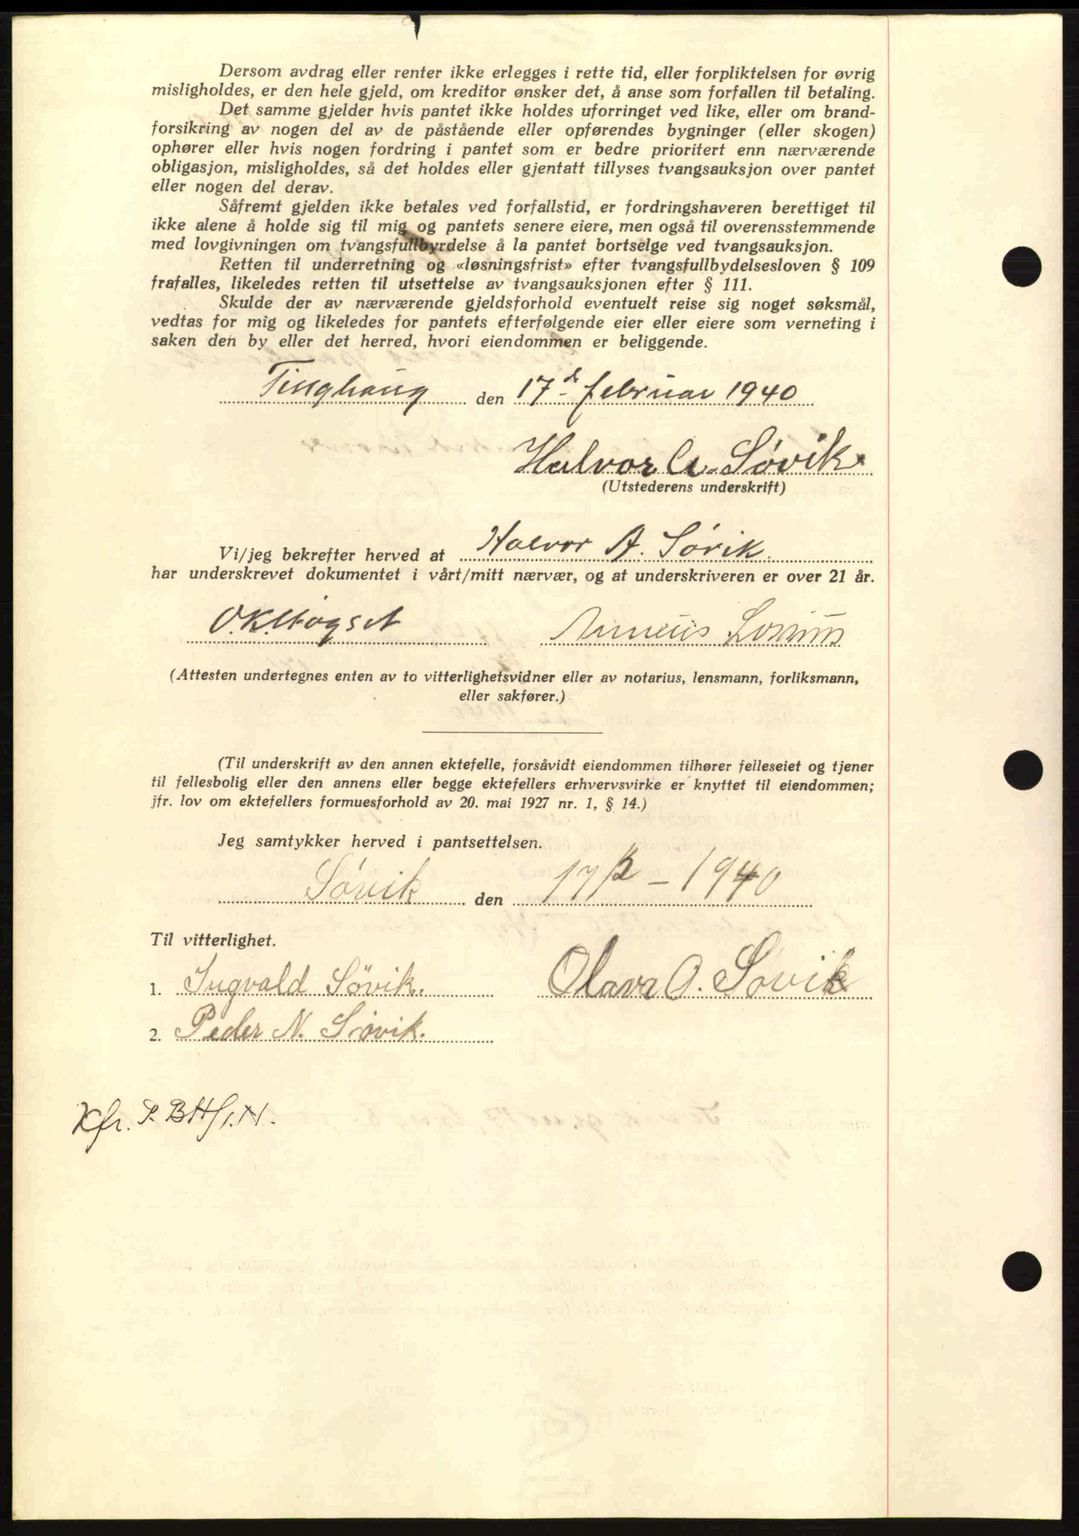 Dersom avdrag eller renter ikke erlegges i rette tid, eller forpliktelsen for øvrig
misligholdes, er den hele gjeld, om kreditor ønsker det, å anse som forfallen til betaling.
Det samme gjelder hvis pantet ikke holdes uforringet ved like, eller om brand-
forsikring av nogen del av de påstående eller opførendes bygninger (eller skogen)
ophører eller hvis nogen fordring i pantet som er bedre prioritert enn nærværende
obligasjon, misligholdes, så det holdes eller gjentatt tillyses tvangsauksjon over pantet
eller nogen del derav.
Såfremt gjelden ikke betales ved forfallstid, er fordringshaveren berettiget til
ikke alene å holde sig til mig og pantets senere eiere, men også til overensstemmende
med lovgivningen om tvangsfullbyrdelse å la pantet bortselge ved tvangsauksjon.
Retten til underretning og «løsningsfrist» efter tvangsfullbydelsesloven § 109
frafalles, likeledes retten til utsettelse av tvangsauksjonen efter § 111.
Skulde der av nærværende gjeldsforhold eventuelt reise sig noget søksmål,
vedtas for mig og likeledes for pantets efterfølgende eier eller eiere som verneting i
saken den by eller det herred, hvori eiendommen er beliggende.
Tinghaug den 17d februar 1940
Halvor A. Søvik
(Utstederens underskrift)
Vi/jeg bekrefter herved at Halvor A. Søvik.
har underskrevet dokumentet i vårt/mitt nærvær, og at underskriveren er over 21 år.
O.K. Høgset
(Attesten undertegnes enten av to vitterlighetsvidner eller av notarius, lensmann, forliksmann,
eller sakfører.)
(Til underskrift av den annen ektefelle, forsåvidt eiendommen tilhører felleseiet og tjener
til fellesbolig eller den annens eller begge ektefellers erhvervsvirke er knyttet til eiendommen;
jfr. lov om ektefellers formuesforhold av 20. mai 1927 nr. 1, § 14.)
Jeg samtykker herved i pantsettelsen.
Søvik den 17/2 - 1940
Til vitterlighet.
1. Ingvald Søvik. Olava O. Søvik
2. Peder N. Søvik.
Kfr.